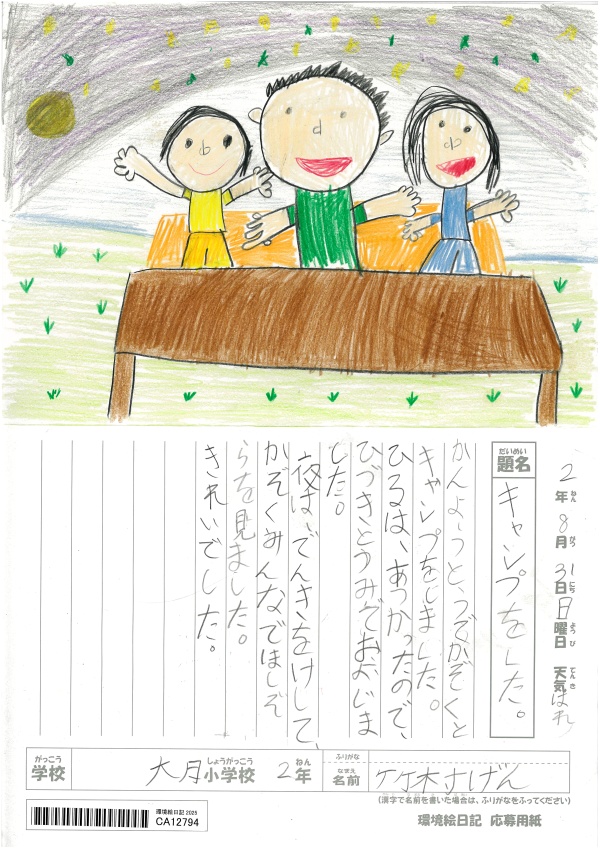 2年8月31日日曜日 天気はれ
ねん がつ にち ようび てんき
だいめい
題名 キャンプをした。
かぞくと
キャンプをしました。
ひるは、あつかったので、
ひづきとうみでおよぎま
した。
夜は、でんきをけして、
かぞくみんなでほしぞ
らを見ました。
きれいでした。
がっこう しょうがっこう ねん ふりがな
学校 大月小学校 2年 なまえ 名前
(漢字で名前を書いた場合は、ふりがなをふってください)
環境絵日記 2025
CA12794
環境絵日記 応募用紙